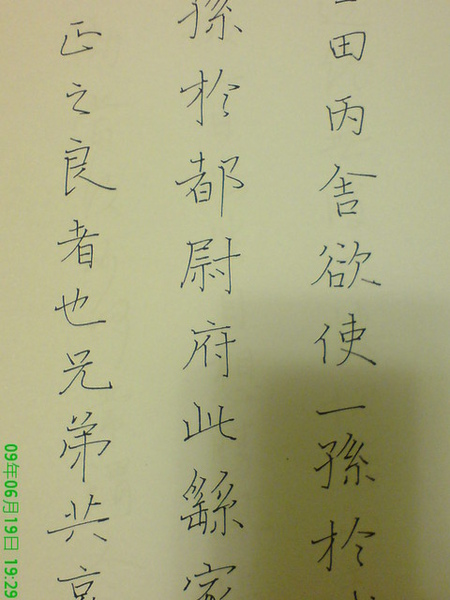 田丙舍欲使一孫於
孫於都尉府此繇家
正之良者也兄弟共哀
09年06月19日 19:29